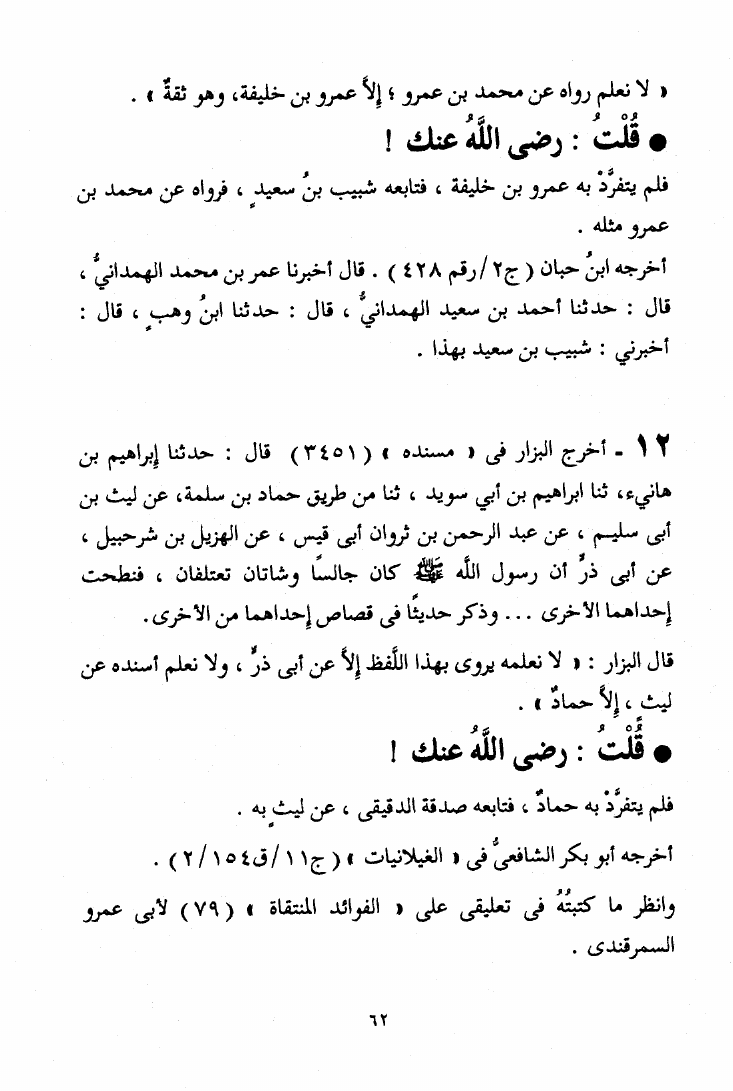 « لا نعلم رواه عن محمد بن عمرو ؛ إلاَّ عمرو بن خليفة، وهو ثقةٌ » .
● قُلْتُ : رضى اللَّهُ عنك !
فلم يتفرَّدْ به عمرو بن خليفة ، فتابعه شبيب بنُ سعيدٍ ، فرواه عن محمد بن
عمرو مثله .
أخرجه ابنُ حبان ( ج٢/رقم ٤٢٨ ) . قال أخبرنا عمر بن محمد الهمدانيُّ ،
قال : حدثنا أحمد بن سعيد الهمدانيُّ ، قال : حدثنا ابنُ وهبٍ ، قال :
أخبرني : شبيب بن سعيد بهذا .
١٢ ـ أخرج البزار فى « مسنده » (٣٤٥١) قال : حدثنا إبراهيم بن
هانيء، ثنا ابراهيم بن أبي سويد ، ثنا من طريق حماد بن سلمة، عن ليث بن
أبى سليم ، عن عبد الرحمن بن ثروان أبى قيس ، عن الهزيل بن شرحبيل ،
عن أبى ذرٍّ أن رسول الله ﷺ كان جالسًا وشاتان تعتلفان ، فنطحت
إحداهما الأخرى ... وذكر حديثًا فى قصاص إحداهما من الأخرى.
قال البزار : « لا نعلمه يروى بهذا اللَّفظ إلاَّ عن أبى ذرٍّ ، ولا نعلم أسنده عن
ليثٍ ، إلاَّ حمادٌ » .
● قُلْتُ : رضى اللَّهُ عنك !
فلم يتفرَّدْ به حمادٌ ، فتابعه صدقة الدقيقى ، عن ليثٍ به .
أخرجه أبو بكر الشافعىُّ فى « الغيلانيات » ( ج١١/ق٢/١٥٤ ) .
وانظر ما كتبتُهُ فى تعليقى على « الفوائد المنتقاة » (٧٩) لأبى عمرو
السمرقندى .
٦٢